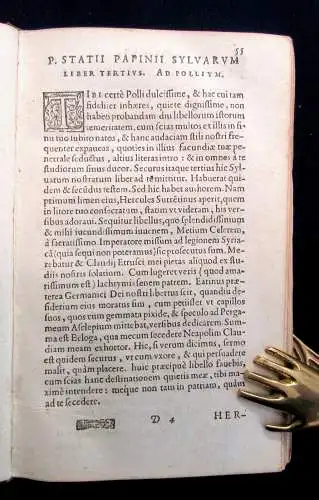 55
P. STATII PAPINII SYLVARVM
LIBER TERTIVS. AD POLLIVM.
TIBI certè Polli dulcissime, & hac cui tam
fideliter inhæres, quiete dignissime, non
habeo probandam diu libellorum istorum
temeritatem, cum scias multos ex illis in si
nu tuo subito natos, & hanc audaciam stili nostri fre-
quenter expaueas, quoties in illius facundiæ tuæ pe-
netrale seductus, altius literas intro : & in omnes à te
studiorum sinus ducor. Securus itaque tertius hic Syl-
uarum nostrarum liber ad te mittitur. Habuerat qui-
dem & secūdus testem. Sed hic habet authorem. Nam
primum limen eius, Hercules Surrētinus aperit, quem
in litore tuo consecratum, statim vt videram, his ver-
sibus adoraui. Sequitur libellus, quo splendidissimum
& mihi iucundissimum iuuenem, Metium Celerem,
à sacratissimo Imperatore missum ad legionem Syria-
cā (quia sequi non poteramus) sic prosecutus sum. Me-
rebatur & Claudij Etrusci mei pietas aliquod ex stu-
diis nostris solatium. Cum lugeret veris (quod ama-
rissimum est) lachrymis senem patrem. Earinus præ-
terea Germanici Dei nostri libertus scit, quandiu de-
siderium eius moratus sim, cum petisset vt capillos
suos, quos cum gemmata pixide, & speculo ad Perga-
meum Asclepium mittebat, versibus dedicarem. Summa
est Ecloga, qua mecum secedere Neapolim Clau-
diam meam exhortor. Hic, si verum dicimus, sermo
est quidem securus, vt cum vxore, & qui persuadere
malit, quàm placere. huic præcipuè libello fauebis,
cum scias hanc destinationem quietis meæ, tibi ma-
ximè intendere : meque non tam in patriam, quàm
ad te secedere.
D 4
HER-